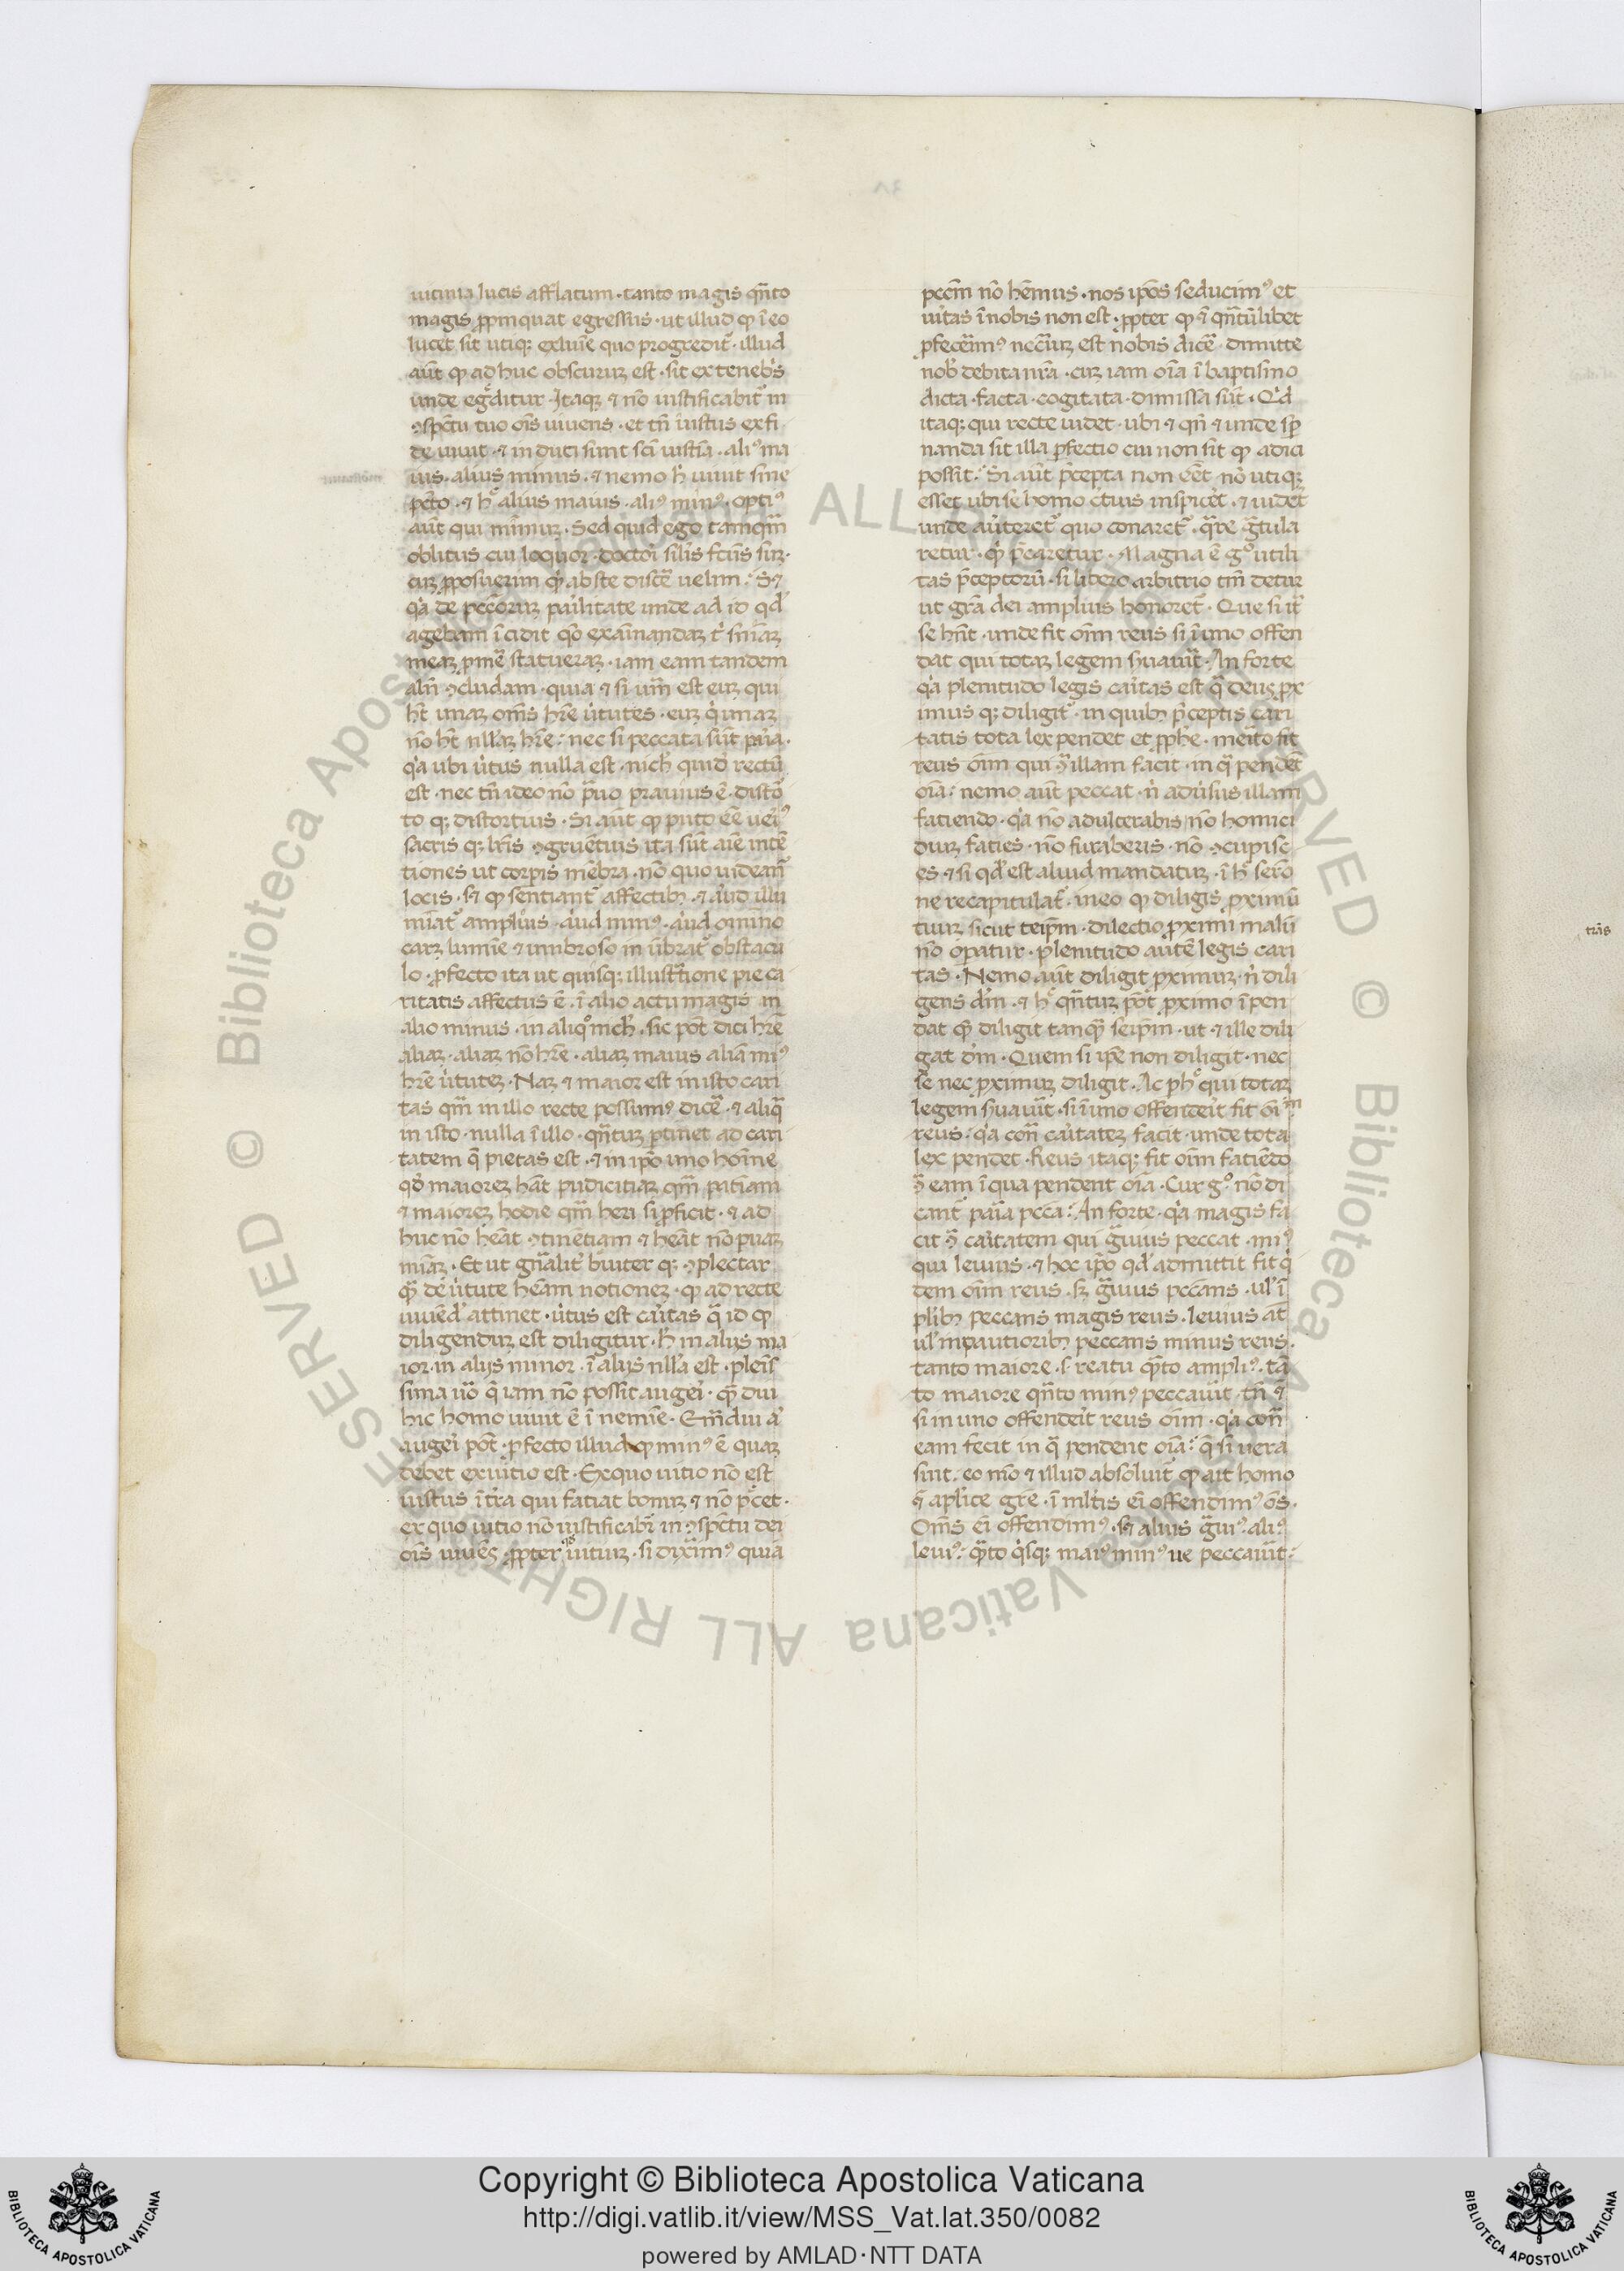 uicinia lucis afflatum · tanto magis qn̄to
magis ꝓpinquat egressus · ut illud ꝙ ī eo
lucet sit utiqꝫ ex lumīe quo progredit᷑ · illud
aūt ꝙ ad huc obscuruꝫ est · sit ex teneb̾s
unde eg̾ditur · Itaqꝫ ⁊ nō iustificabit᷑ in
ꝯspectu tuo oīs uiuens · et tn̄ iustus ex fi
de uiuit · ⁊ induti sunt sc̄i iustitia · aliꝰ ma
ius · alius minus · ⁊ nemo h̾ uiuit sine
pctō · ⁊ h̾ alius maius · aliꝰ minꝰ · optiꝰ
aūt qui minimuꝫ · Sed quid ego tamqm̄
oblitus cui loquor · doctori sil̾is fc̄us suꝫ ·
cuꝫ ꝓposuerim qd̾ abste disce̾ uelim · Sꝫ
q̾a de pcc̄oruꝫ parilitate unde ad id qd̾
agebam īcidit qō examinandaꝫ t̾ sniaꝫ
meaꝫ ꝓmē statueraꝫ · iam eam tandem
aliq̄n ꝯcludam · quia ⁊ si ueꝝ est euꝫ qui
h̄t unaꝫ oms hr̄e u̾tutes · euꝫ q̾ unaꝫ
nō h̄t nll̾aꝫ hr̄e · nec si peccata sūt paria ·
q̾a ubi u̾tus nulla est · nich̾ quid̾ rectū
est · nec tn̄ ideo nō prauo prauius ē · distor
to qꝫ distortius · Si aūt ꝙ puto eē ueriꝰ
sacris qꝫ lr̄is ꝯgruentius ita sūt aīe intē
tiones ut corpis mēbra · nō quo uideant᷑
locis · sꝫ ꝙ sentiant᷑ affectibꝫ · ⁊ aliud illu
minat᷑ amplius · aliud minꝰ · aliud omnino
caret lumīe ⁊ umbroso in ūbrat᷑ obstacu
lo · ꝓfecto ita ut quisqꝫ illustratione pie ca
ritatis affectus ē · ī alio actu magis in
alio minus · in aliqͦ nich̾ · sic pōt dici hr̄e
aliaꝫ · aliaꝫ nō hr̄e · aliaꝫ maius aliā miꝰ
hr̄e u̾tuteꝫ · Naꝫ ⁊ maior est in isto cari
tas qm̄ in illo recte possumꝰ dice̾ · ⁊ aliq̄
in isto · nulla ī illo · qn̄tuꝫ ꝑtinet ad cari
tatem q̄ pietas est · ⁊ in ip̄o uno hoīne
qd̾ maioreꝫ hēat pudicitiaꝫ qm̄ patiam
⁊ maioreꝫ hodie qm̄ heri si ꝓficit · ⁊ ad
huc nō hēat ꝯtinētiam ⁊ hēat nō paruaꝫ
miāꝫ · Et ut gn̄alit᷑ breuiter qꝫ ꝯplectar
qm̄ de u̾tute hēam notioneꝫ · ꝙ ad recte
uiuēd̾ attinet · u̾tus est cār̾itas q̄ id ꝙ
diligenduꝫ est diligitur · h̾ in alijs ma
ior · in alijs minor · ī alijs nll̾a est · pleīs
sima u̾o q̄ iam nō possit augeri · qm̄ diu
hic homo uiuit ē ī nemīe · Qm̄ diu at̾
augeri pōt · ꝓfecto illud ꝙ minꝰ ē quaꝫ
debet ex uitio est · Ex quo uitio nō est
iustus ī tr̄a qui faciat bonuꝫ ⁊ nō peccet ·
ex quo uitio nō iustificabit̾ in ꝯspectu dei
oīs uiuēs · ꝓpter qͦ uitiuꝫ · si dixerimꝰ quia
pccm̄ nō hēmus · nos ip̄os seducimꝰ et
u̾itas ī nobis non est · ꝓpter ꝙ ⁊ qn̄tūlibet
ꝓfecerimꝰ necc̄iuꝫ est nobis dice̾ · dimitte
nob̾ debita nr̄a · cuꝫ iam oīa ī baptismo
dicta · facta · cogitata · dimissa sūt · Qd̾
itaqꝫ qui recte uidet · ubi ⁊ qn̄ ⁊ unde spe
randa sit illa ꝑfectio cui non sit ꝙ adici
possit · Si aūt p̄cepta non eēt · nō utiqꝫ
esset ubi se homo certius inspiceret · ⁊ uidet
unde au̾teret᷑ quo conaret᷑ · qr̄e gr̄tula
retur · qd̾ p̄caretur · Magna ē gͦ utili
tas p̄ceptorū · si libero arbitrio tm̄ detur
ut gr̄a dei amplius honoret᷑ · Que si it̾
se hn̄t · unde fit oīm reus si ī uno offen
dat qui totaꝫ legem s̾uau̾it · An forte
q̾a plenitudo legis car̾itas est q̄ deus ꝓx
imus qꝫ diligit᷑ · in quibꝫ p̄ceptis cari
tatis tota lex pendet et ꝓphe · merito fit
reus oīm qui ꝯ̄ illam facit · in q̄ pendēt
oīa · nemo aūt peccat · n̾ adu̾sus illam
faciendo · q̾a nō adulterabis nō homici
diuꝫ facies · nō furaberis · nō ꝯcupisc
es ⁊ si qd̾ est aliud mandatuꝫ · ī h̾ sermo
ne recapitulat᷑ · in eo ꝙ diligis ꝓximū
tuuꝫ sicut teip̄m · dilectio ꝓximi malū
nō oꝑatur · plenitudo autē legis cari
tas · Nemo aūt diligit ꝓximuꝫ · n̾ dili
gens dm̄ · ⁊ h̾ qn̄tuꝫ pōt ꝓximo īpen
dat qm̄ diligit tanqm̄ seip̄m · ut ⁊ ille dili
gat dm̄ · Quem si ip̄e non diligit · nec
se nec ꝓximuꝫ diligit · Ac ꝑ h̾ qui totaꝫ
legem s̾uau̾it · si ī uno offenderit fit oīm
reus · q̾a contra car̾itateꝫ facit · unde tota
lex pendet · Reus itaqꝫ fit oīm faciēdo
ꝯ̄ eam ī qua pendent oīa · Cur gͦ nō di
cant᷑ paria pcc̄a · An forte · q̾a magis fa
cit ꝯ̄ car̾itatem qui gr̄uius peccat · miꝰ
qui leuius · ⁊ hoc ip̄o qd̾ admittit fit q̾
dem oīm reus · sꝫ gr̄uius peccans · ul̾ ī
plr̾ibꝫ peccans magis reus · leuius at̄
ul̾ in paucioribꝫ peccans minus reus ·
tanto maiore · s · reatu qn̄to ampliꝰ · tā
to maiore qn̄to minꝰ peccau̾it · tn̄ ⁊
si in uno offenderit reus oīm · q̾a contra
eam fecit in q̄ pendent oīa · q̄ si uera
sunt · eo mō ⁊ illud absoluit᷑ ꝙ ait homo
⁊ aplice gr̄e · ī mltis ei offendimꝰ oēs ·
Oms ei offendimꝰ · sꝫ alius gr̄uiꝰ · aliꝰ
leuiꝰ · qn̄to q̾sqꝫ maiꝰ minꝰ ue peccau̾it ·
Copyright © Biblioteca Apostolica Vaticana
http://digi.vatlib.it/view/MSS_Vat.lat.350/0082
powered by AMLAD·NTT DATA